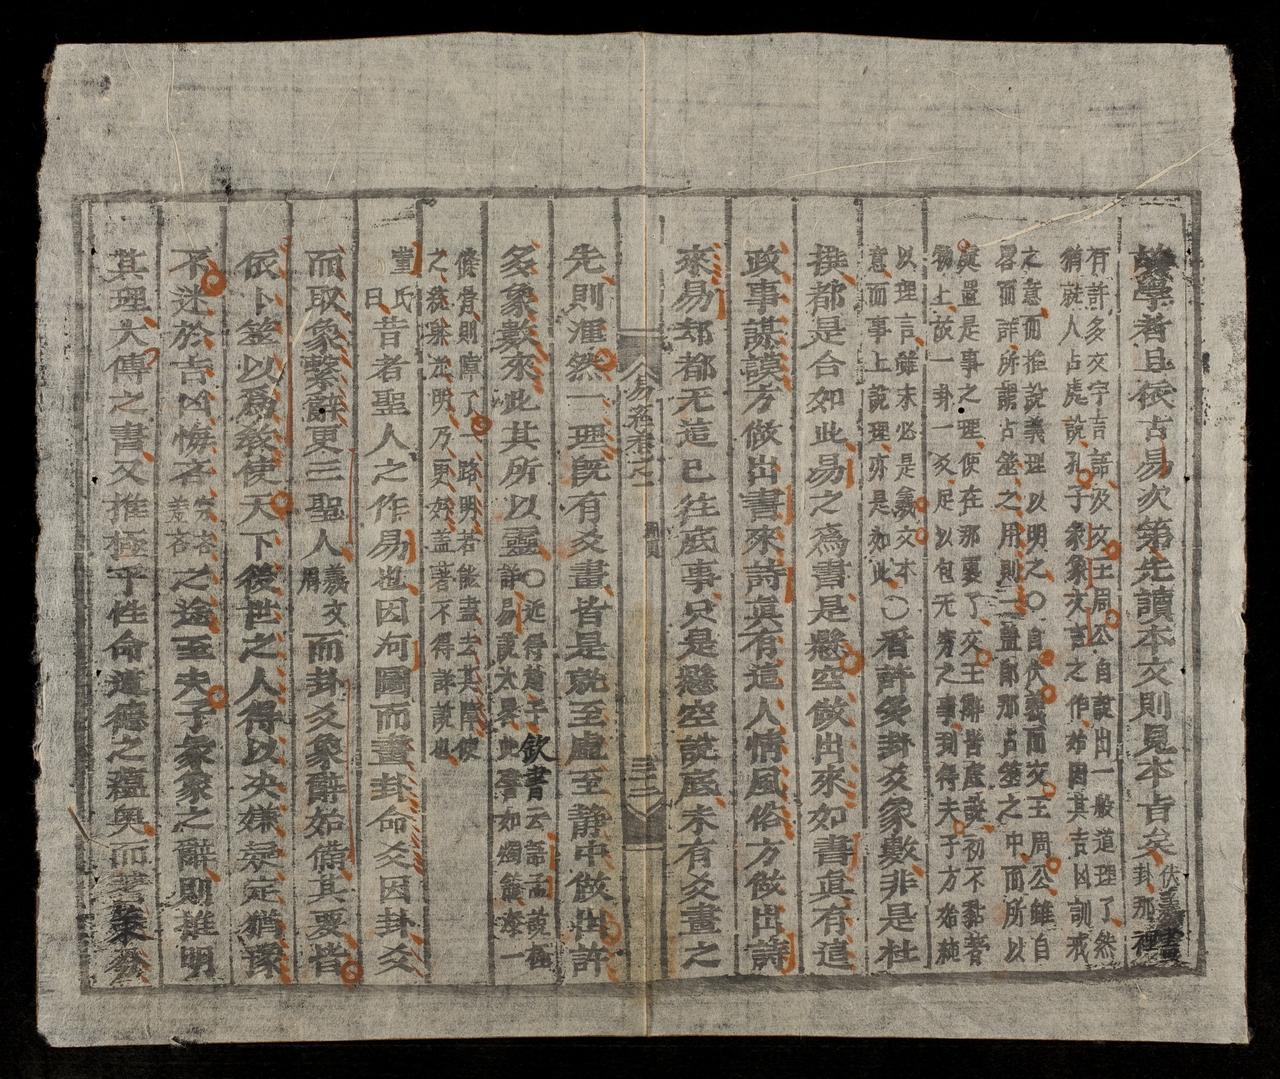 學者且依古易次第先讀本文則見本旨矣伏羲畫
卦那裡
有許多文字言語及文王周公自說出一般道理了然
猶就人占處說孔子彖象文言之作始因其吉凶訓戒
之意而推說義理以明之〇自伏羲而文王周公雖自
畧而詳所謂占筮之用則一蓋即那占筮之中而所以
處置是事之理便在那裏了文王辭皆虛說初不黏著
物上故一卦一爻足以包无窮之事到得夫子方始純
以理言雖未必是羲文本
意而事上說理亦是如此〇看許多卦爻象數非是杜
撰都是合如此易之爲書是懸空做出來如書眞有這
政事謀謨方做出書來詩眞有這人情風俗方做出詩
來易却都无這已往底事只是懸空說底未有爻畫之
易經卷之一
圖貝
三十二
先則渾然一理旣有爻畫皆是就至虛至静中做出許
多象數來此其所以靈〇近得蔡子欽書云語孟說極
詳易說太畧此譬如燭籠添一
條骨則障了一路明若能盡去其障使
之統㮚光明乃更好蓋著不得詳說也
董氏
曰昔者聖人之作易也因河圖而畫卦命爻因卦爻
而取象繫辭更三聖人羲文
周而卦爻象辭始備其要皆
依卜筮以爲教使天下後世之人得以决嫌疑定猶豫
不迷於吉凶悔吝之途至夫子彖象之辭則推明
其理大傳之書又推極乎性命道德之蘊奥而蓍策分